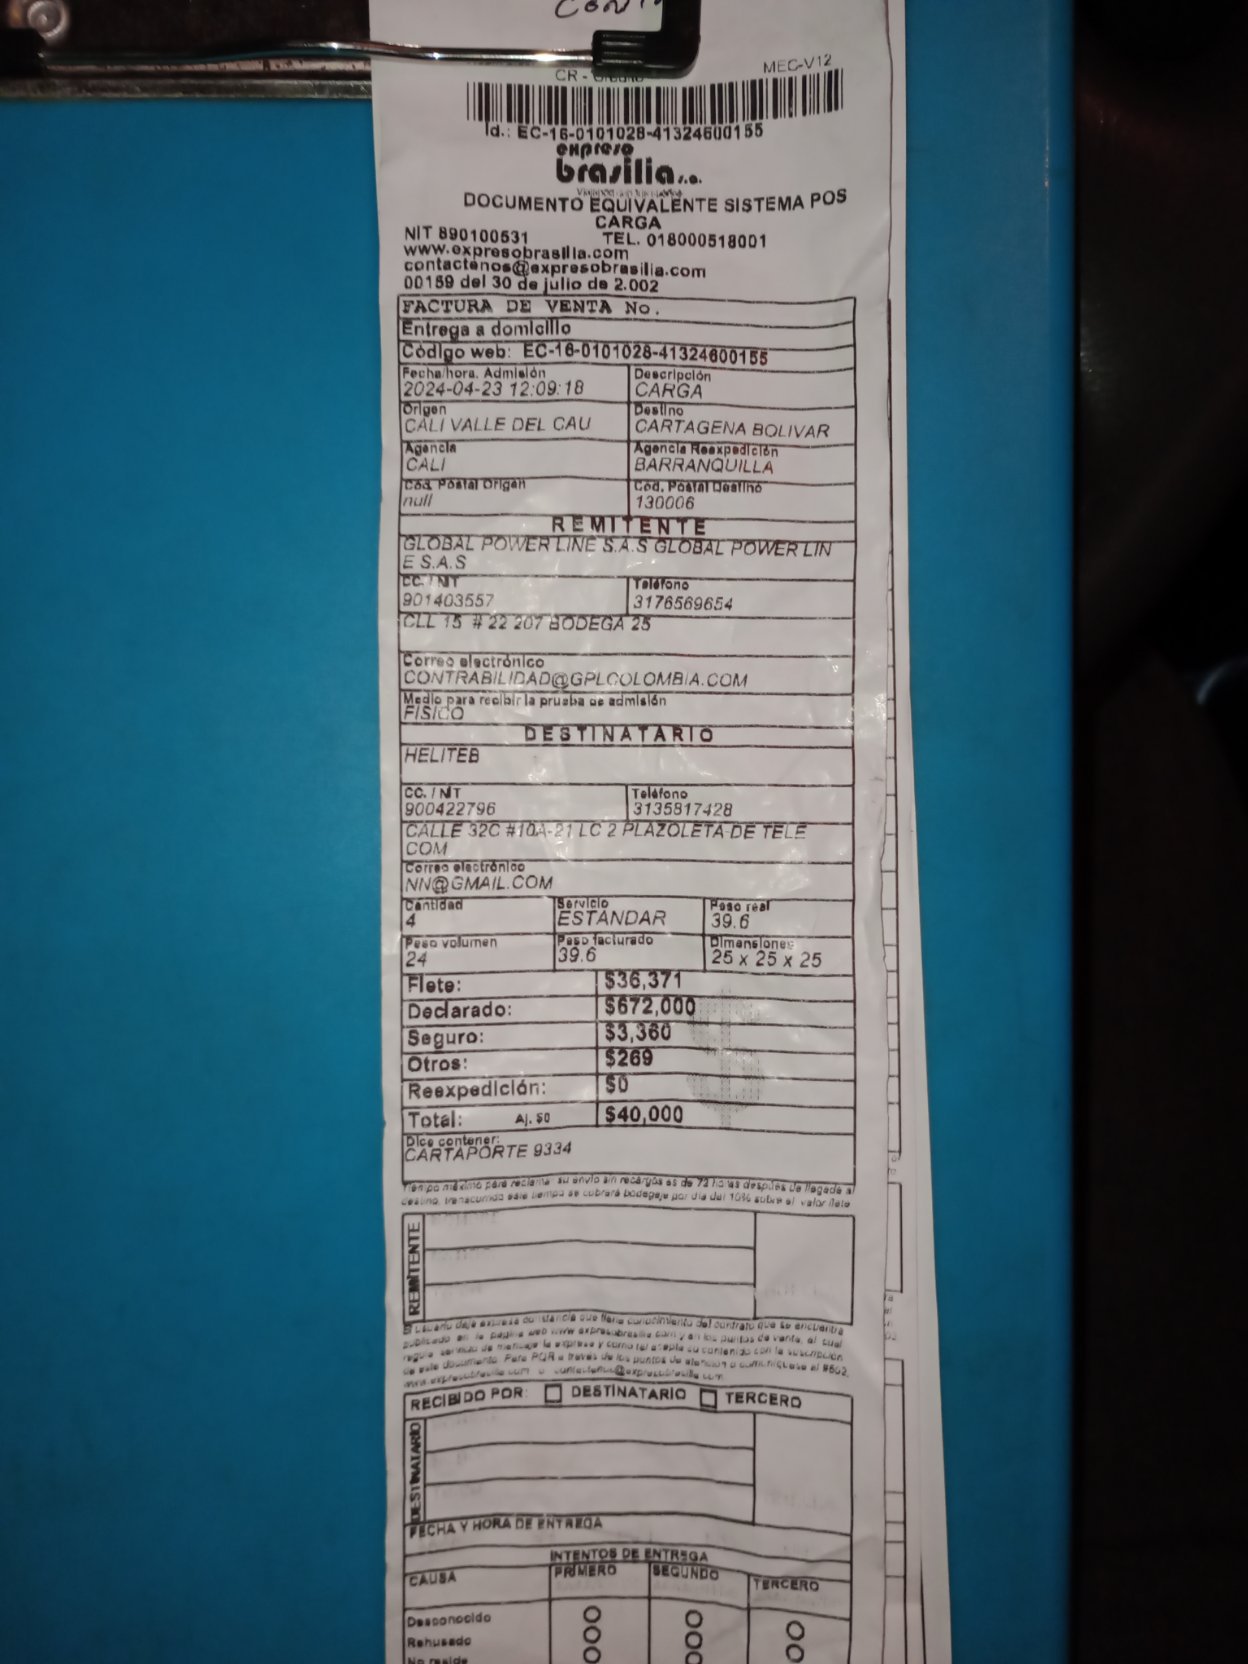 MEC-V12
CR -
Id.: EC-16-0101028-41324600155
expreso
brasilia s.a.
DOCUMENTO EQUIVALENTE SISTEMA POS
CARGA
NIT 890100531 TEL. 018000518001
www.expresobrasilia.com
contactenos@expresobrasilia.com
00159 del 30 de julio de 2.002
FACTURA DE VENTA No.
Entrega a domicilio
Código web: EC-16-0101028-41324600155
Fecha/hora. Admisión Descripción
2024-04-23 12:09:18 CARGA
Origen Destino
CALI VALLE DEL CAU CARTAGENA BOLIVAR
Agencia Agencia Reexpedición
CALI BARRANQUILLA
Cód. Postal Origen Cód. Postal Destino
null 130006
REMITENTE
GLOBAL POWER LINE S.A.S GLOBAL POWER LIN
E S.A.S
CC. / NIT Teléfono
901403557 3176569654
CLL 15 # 22 207 BODEGA 25
Correo electrónico
CONTRABILIDAD@GPLCOLOMBIA.COM
Medio para recibir la prueba de admisión
FISICO
DESTINATARIO
HELITEB
CC. / NIT Teléfono
900422796 3135817428
CALLE 32C #10A-21 LC 2 PLAZOLETA DE TELE
COM
Correo electrónico
NN@GMAIL.COM
Cantidad Servicio Peso real
4 ESTANDAR 39.6
Peso volumen Peso facturado Dimensiones
24 39.6 25 x 25 x 25
Flete: $36,371
Declarado: $672,000
Seguro: $3,360
Otros: $269
Reexpedición: $0
Total: Aj. $0 $40,000
Dice contener:
CARTAPORTE 9334
Tiempo máximo para reclamar su envío sin recargos es de 72 horas después de llegada al
destino, transcurrido este tiempo se cobrará bodegaje por día del 10% sobre el valor flete
REMITENTE
El usuario deja expresa constancia que tiene conocimiento del contrato que se encuentra
publicado en la página web www.expresobrasilia.com y en los puntos de venta, el cual
regula servicio de mensajería expresa y como tal acepta su contenido con la suscripción
de este documento. Para PQR a través de los puntos de atención o comuníquese al #502,
www.expresobrasilia.com o contactenos@expresobrasilia.com
RECIBIDO POR: DESTINATARIO TERCERO
DESTINATARIO
FECHA Y HORA DE ENTREGA
INTENTOS DE ENTREGA
CAUSA PRIMERO SEGUNDO TERCERO
Desconocido
Rehusado
No reside